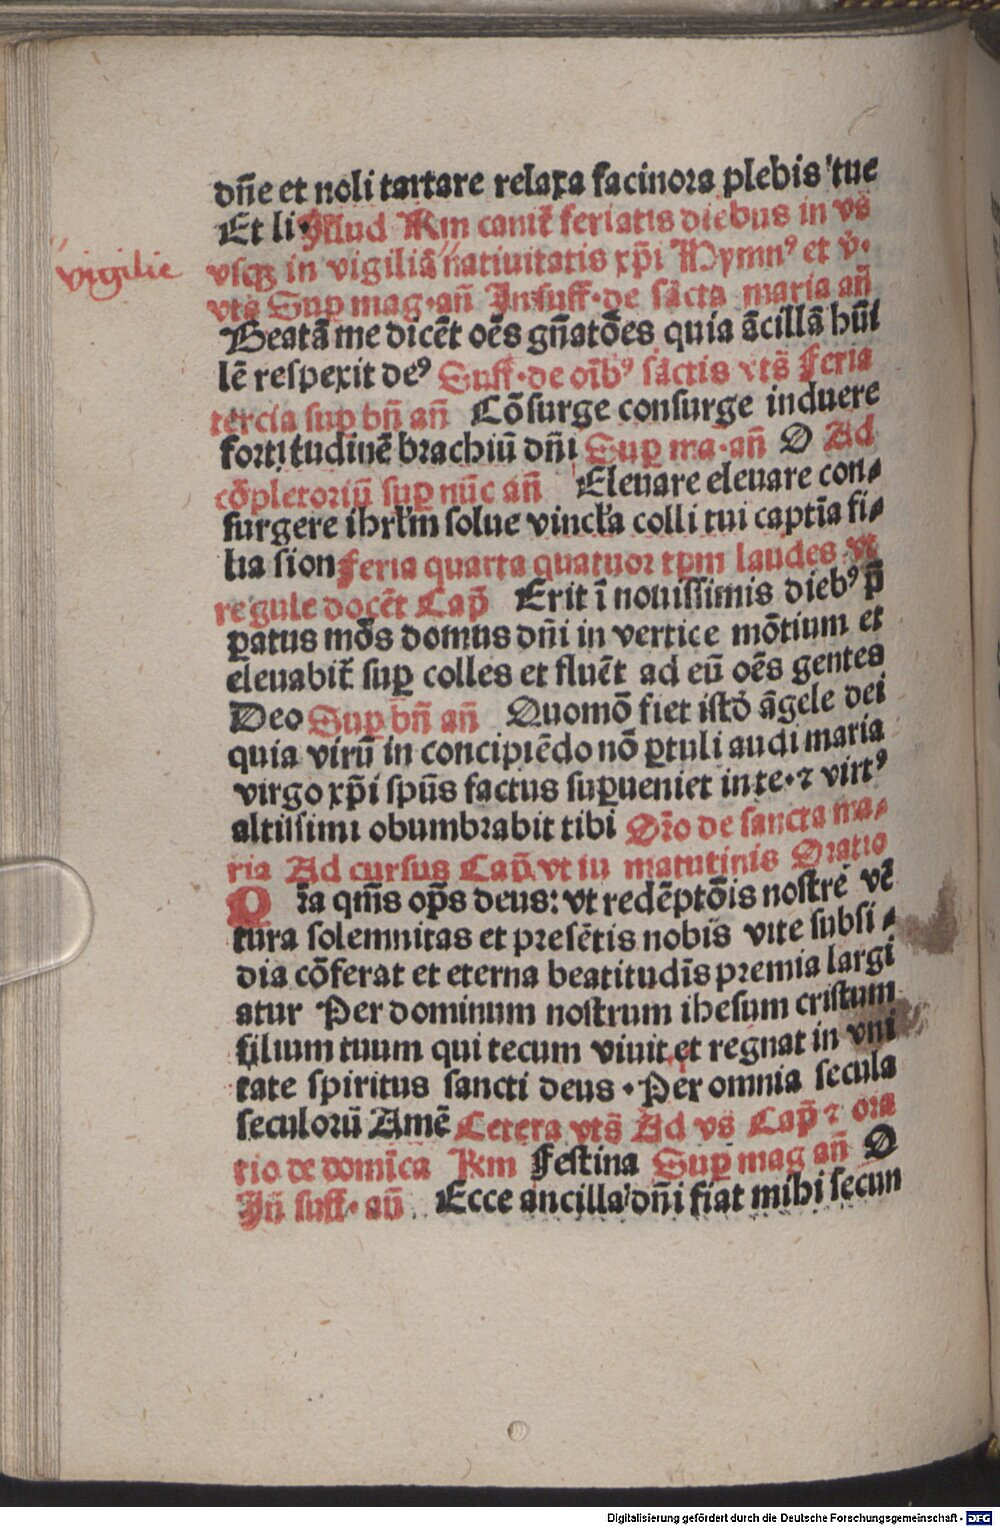 dn̄e et noli tartare relaxa facinora plebis tue
Et li Illud Rm canit᷑ feriatis diebus in vs̄
vigilie
vsqꝫ in vigiliā natiuitatis xp̄i Hymnꝰ et v̄.
vts̄ Suꝑ mag. an̄ In suff. de sācta maria an̄
Beatā me dicēt oēs gn̄atōes quia ācillā hūi
lē respexit deꝰ Suff. de oībꝰ sāctis vts̄ Feria
tercia suꝑ bn̄ an̄ Cōsurge consurge induere
fortitudinē brachiū dn̄i Suꝑ ma. an̄ O Ad
cōpletoriū suꝑ nūc an̄ Eleuare eleuare con⸗
surgere ihrlm̄ solue vincla colli tui captīa fi⸗
lia sion Feria quarta quatuor tꝑm laudes vt
regule docēt Cap̄ Erit ī nouissimis diebꝰ p̄
ꝑatus mōs domus dn̄i in vertice mōtium et
eleuabit᷑ suꝑ colles et fluēt ad eū oēs gentes
Deo Suꝑ bn̄ an̄ Quomō fiet istd̄ āgele dei
quia virū in concipiēdo nō ꝑtuli audi maria
virgo xp̄i spūs factus suꝑueniet in te. ⁊ virtꝰ
altissimi obumbrabit tibi Orō de sancta ma⸗
ria Ad cursus Cap̄. vt in matutinis Oratio
Q ra qm̄s op̄s deus: vt redēptōis nostre vē
tura solemnitas et presētis nobis vite subsi⸗
dia cōferat et eterna beatitudīs premia largi
atur Per dominum nostrum ihesum cristum
filium tuum qui tecum viuit et regnat in vni
tate spiritus sancti deus. Per omnia secula
seculorū Amē Cetera vts̄ Ad vs̄ Cap̄ ⁊ ora
tio de domīca Rm Festina Suꝑ mag an̄ O
In̄ suff. an̄ Ecce ancilla dn̄i fiat mihi secun
Digitalisierung gefördert durch die Deutsche Forschungsgemeinschaft - DFG